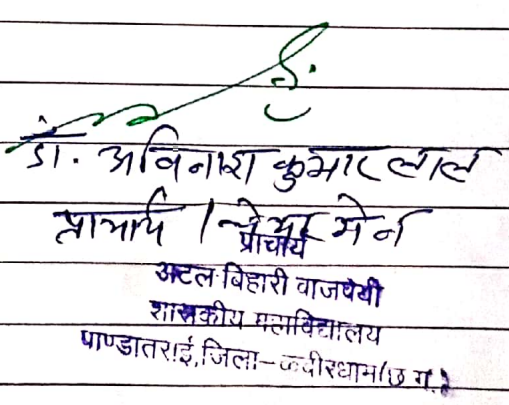 डॉ. अविनाश कुमार लाल
प्राचार्य / चेयरमेन
प्राचार्य
अटल बिहारी वाजपेयी
शासकीय महाविद्यालय
पाण्डातराई, जिला-कबीरधाम (छ.ग.)